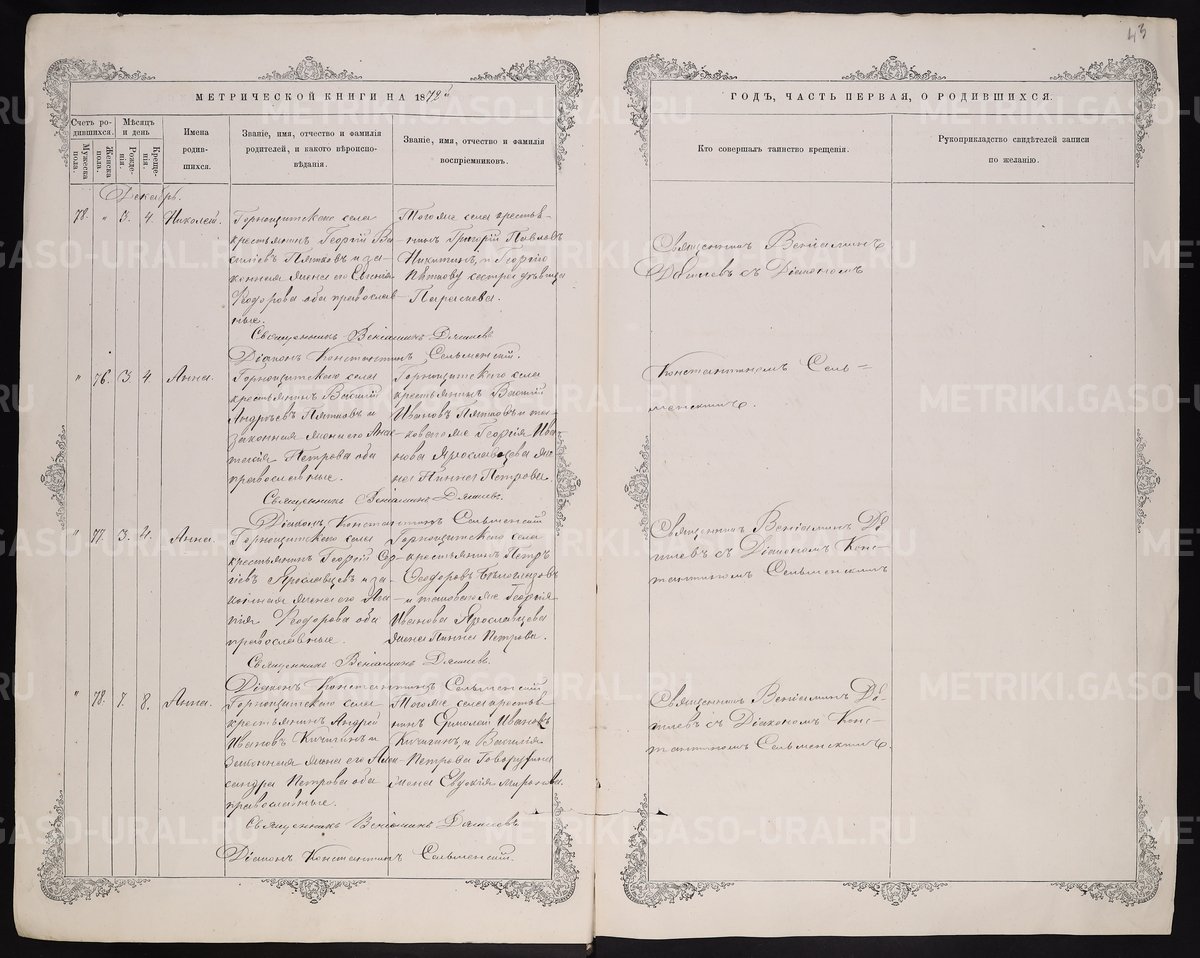 43
МЕТРИЧЕСКОЙ КНИГИ НА 1872й
ГОДЪ, ЧАСТЬ ПЕРВАЯ, О РОДИВШИХСЯ.
Счетъ родившихся.
Мужеска пола.
Женска пола.
Мѣсяцъ и день
Рожденія.
Крещенія.
Имена родившихся.
Званіе, имя, отчество и фамилія родителей, и какого вѣроисповѣданія.
Званіе, имя, отчество и фамилія воспріемниковъ.
Кто совершалъ таинство крещенія.
Рукоприкладство свидѣтелей записи по желанію.
Декабрь.
78. " 3. 4. Николай.
Горнощитскаго села
крестьянинъ Георгій Ва
силіевъ Пятковъ и за
конная жена его Евгенія
Ѳеодорова оба православ
ные.
Тогоже села крестья-
нинъ Григорій Павловъ
Никитинъ, и Георгію
Пяткову сестра дѣвица
Параскева.
Священникъ Веніаминъ
съ Діакономъ
Священникъ Веніаминъ
Діаконъ Константинъ Сельменскій.
" 76. 3. 4. Анна.
Горнощитскаго села
крестьянинъ Василій
Андреевъ Пятковъ и
законная жена его Анас
тасія Петрова оба
православные.
Горнощитскаго села
крестьянинъ Василій
Ивановъ Пятковъ и та-
коваго же Георгія Ива-
нова Ярославцева же
на Анна Петрова.
Константиномъ Сель=
менскимъ.
Священникъ Веніаминъ
Діаконъ Константинъ Сельменскій
" 77. 3. 4. Анна.
Горнощитскаго села
крестьянинъ Георгій Сер
гіевъ Ярославцевъ и за
конная жена его
Ѳеодорова оба
православные.
Горнощитскаго села
крестьянинъ Петръ
Ѳеодоровъ
и таковаго же Георгія
Иванова Ярославцева
жена Анна Петрова.
Священникъ Веніаминъ
съ Діакономъ Конс-
тантиномъ Сельменскимъ
Священникъ Веніаминъ
Діаконъ Константинъ Сельменскій
" 78. 7. 8. Анна.
Горнощитскаго села
крестьянинъ Андрей
Ивановъ Кичигинъ и
законная жена его Алек
сандра Петрова оба
православные.
Тогоже села крестья-
нинъ Ермолай Ивановъ
Кичигинъ, и Василія
Петрова Говорухина
жена Евдокія Миронова.
Священникъ Веніаминъ
съ Діакономъ Конс-
тантиномъ Сельменскимъ.
Священникъ Веніаминъ
Діаконъ Константинъ Сельменскій.
METRIKI.GASO-URAL.RU